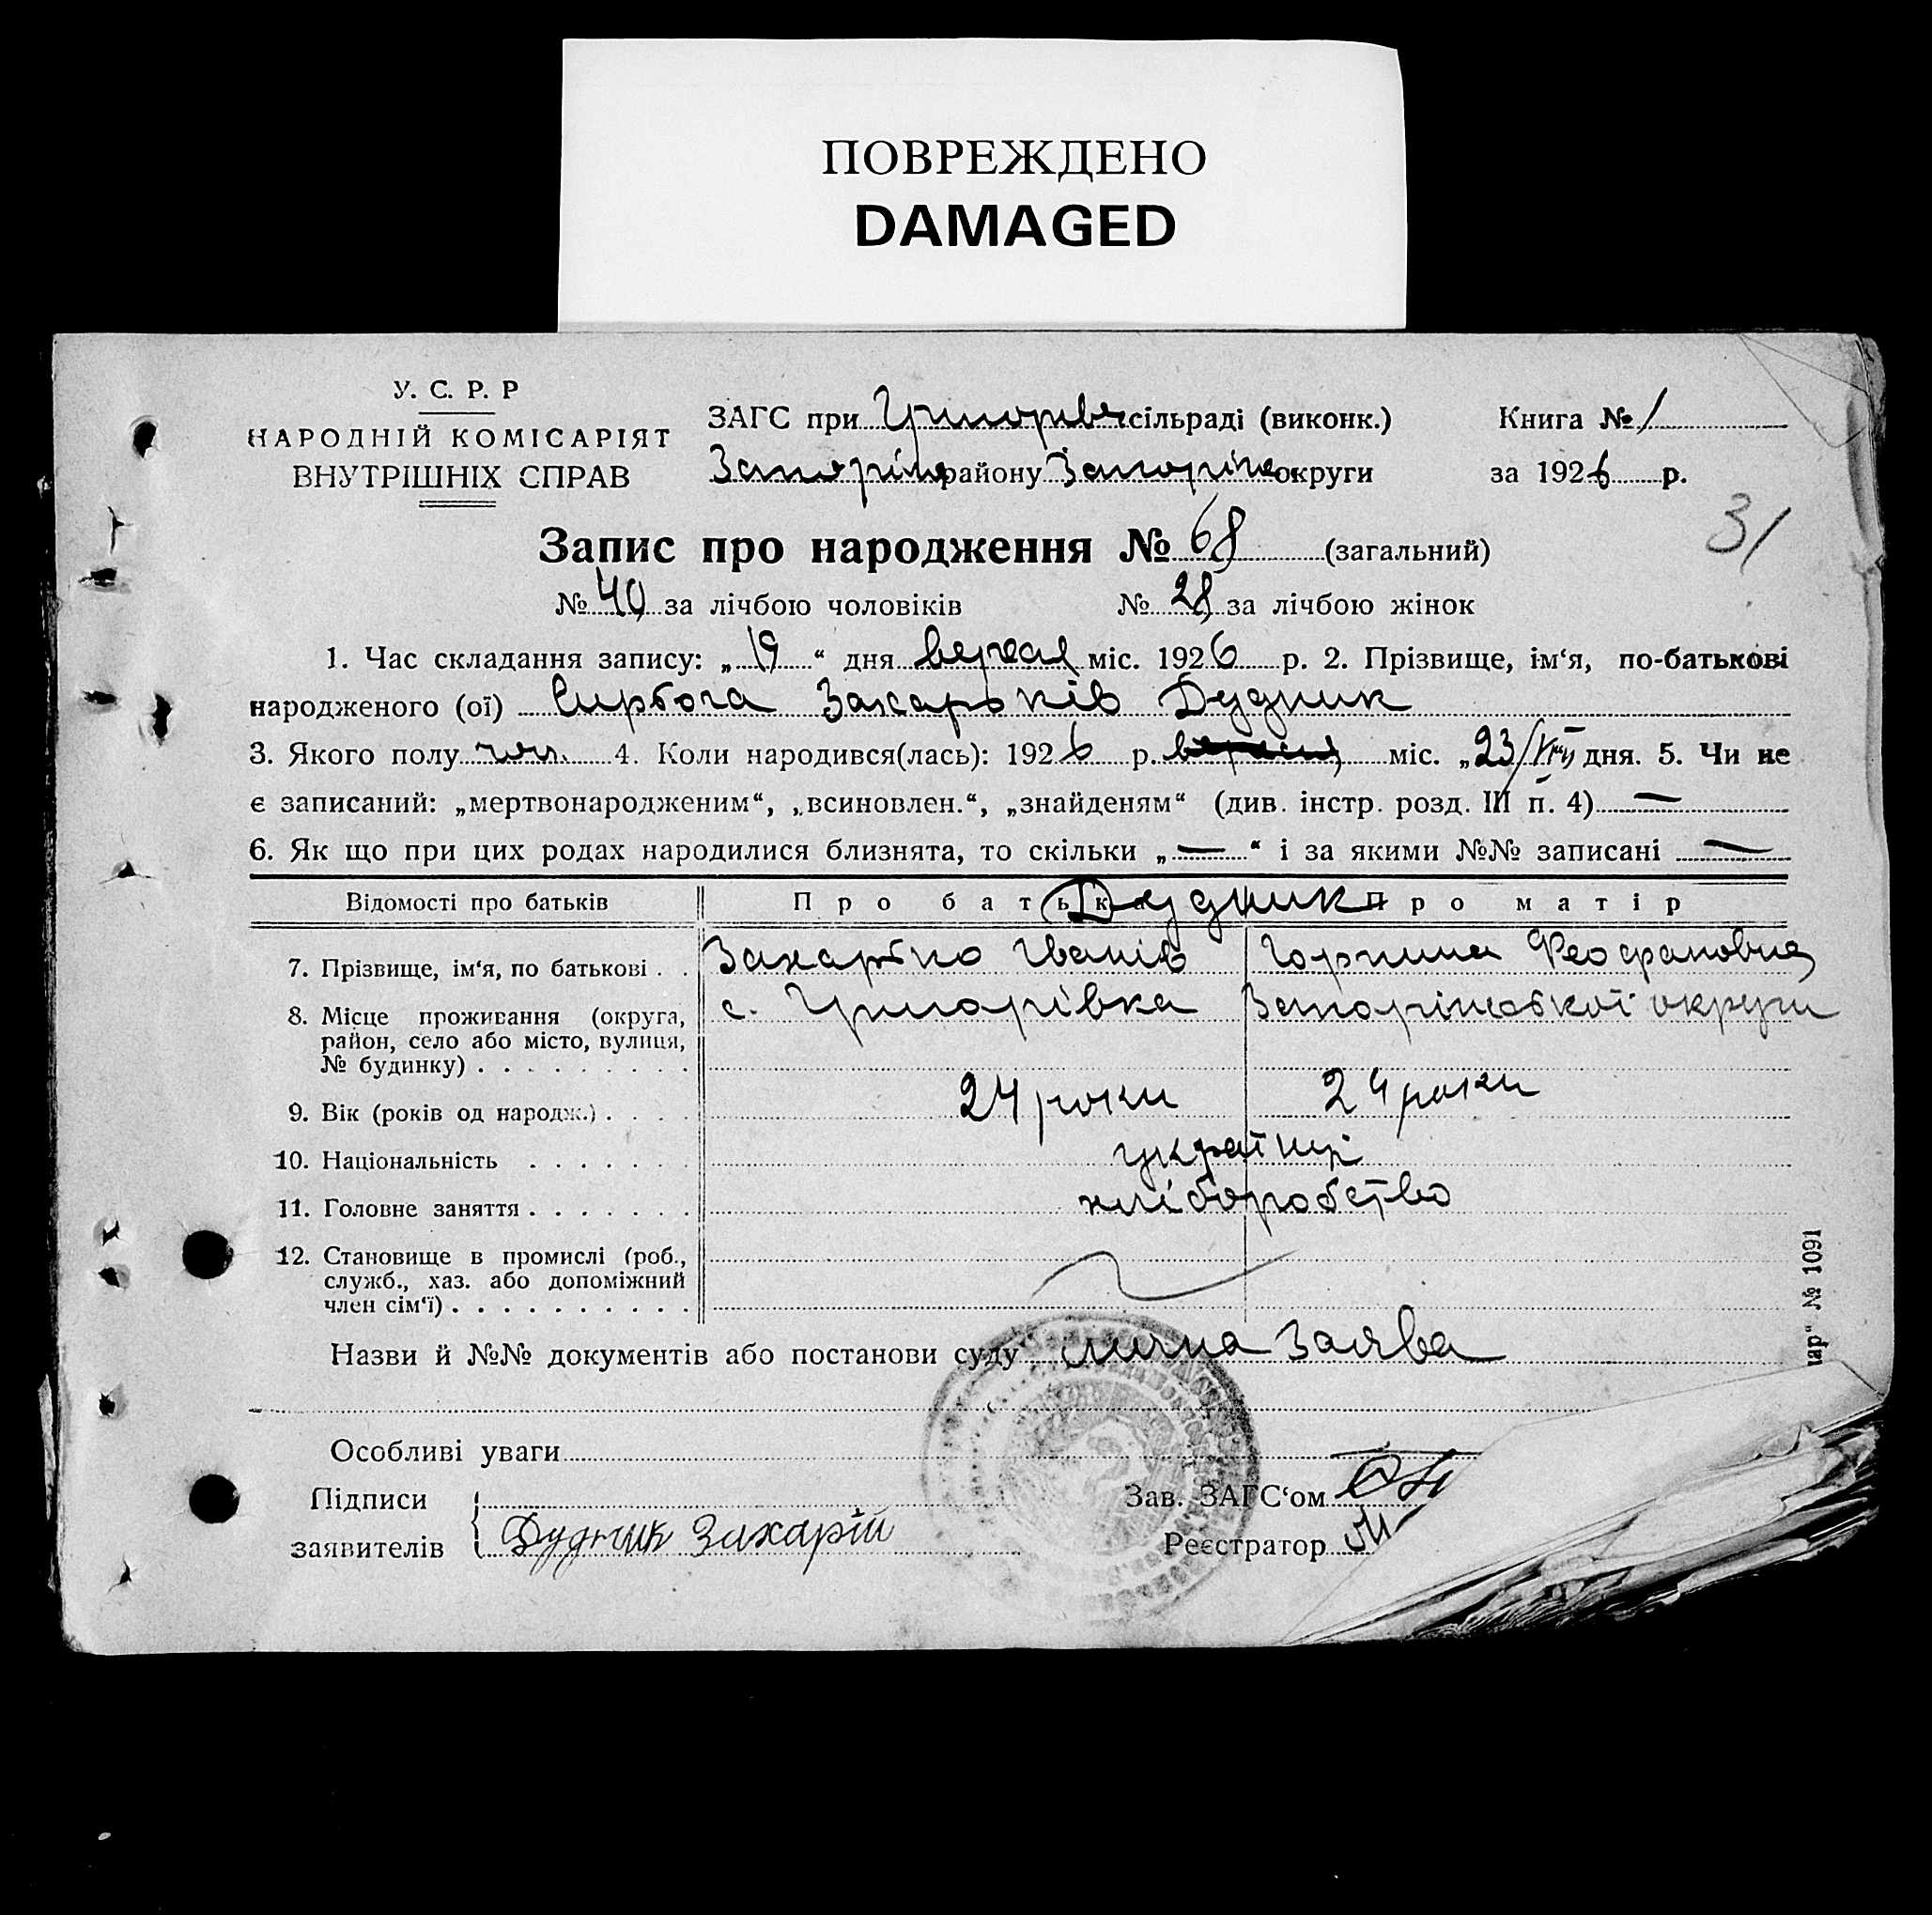 ПОВРЕЖДЕНО
DAMAGED
У. С. Р. Р
НАРОДНІЙ КОМІСАРІЯТ
ВНУТРІШНІХ СПРАВ
ЗАГС при Григорівс сільраді (виконк.)
Запоріж району Запоріж округи
Книга № 1
за 1926 р.
31
Запис про народження № 68 (загальний)
№ 40 за лічбою чоловіків № 28 за лічбою жінок
1. Час складання запису: „ 19 “ дня вересня міс. 1926 р. 2. Прізвище, ім‘я, по-батькові
народженого (ої) Захарьків Дудник
3. Якого полу чол. 4. Коли народився(лась): 1926 р. вересня міс. „ 23/VIII дня. 5. Чи не
є записаний: „мертвонародженим“, „всиновлен.“, „знайденям“ (див. інстр. розд. III п. 4) —
6. Як що при цих родах народилися близнята, то скільки „ — “ і за якими №№ записані —
Відомості про батьків Про батька Дудник Про матір
7. Прізвище, ім‘я, по батькові . . Захарько Іванів Горпина Феофановна
8. Місце проживання (округа, с. Григорівка Запоріжської округи
район, село або місто, вулиця,
№ будинку) . . . . . . . . .
9. Вік (років од народж.) . . . . 24 роки 24 роки
10. Національність . . . . . . . українці
11. Головне заняття . . . . . . . хліборобство
12. Становище в промислі (роб.,
служб., хаз. або допоміжний
член сім‘ї) . . . . . . . . . .
Назви й №№ документів або постанови суду лична заява
Особливі уваги
Підписи
заявителів Дудник Захарій
Зав. ЗАГС‘ом
Реєстратор
ар“ № 1091